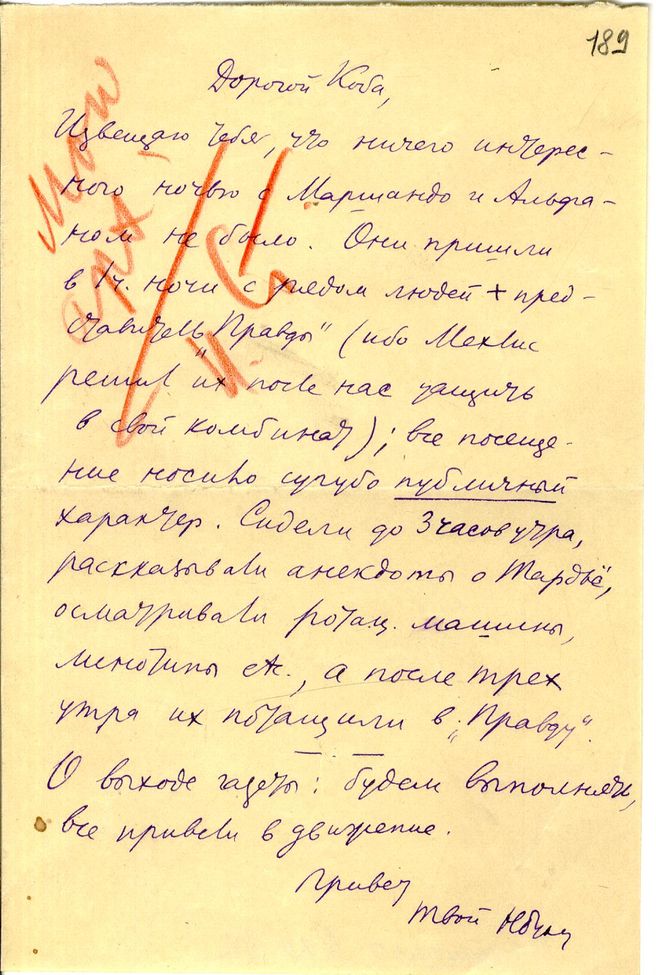 189
Дорогой Коба,
Извещаю тебя, что ничего интерес-
ного ночью с Маршандо и Альфа-
ном не было. Они пришли
в 1 ч. ночи с рядом людей + пред-
ставитель „Правды" (ибо Мехлис
решил их после нас тащить
в свой комбинат); все посеще-
ние носило сугубо публичный
характер. Сидели до 3 часов утра,
рассказывали анекдоты о Тардьё,
осматривали ротац. машины,
линотипы etc., а после трех
утра их потащили в „Правду".
О выходе газеты: будем выполнять,
все привели в движение.
Привет
Твой НБухар
Мой
арх